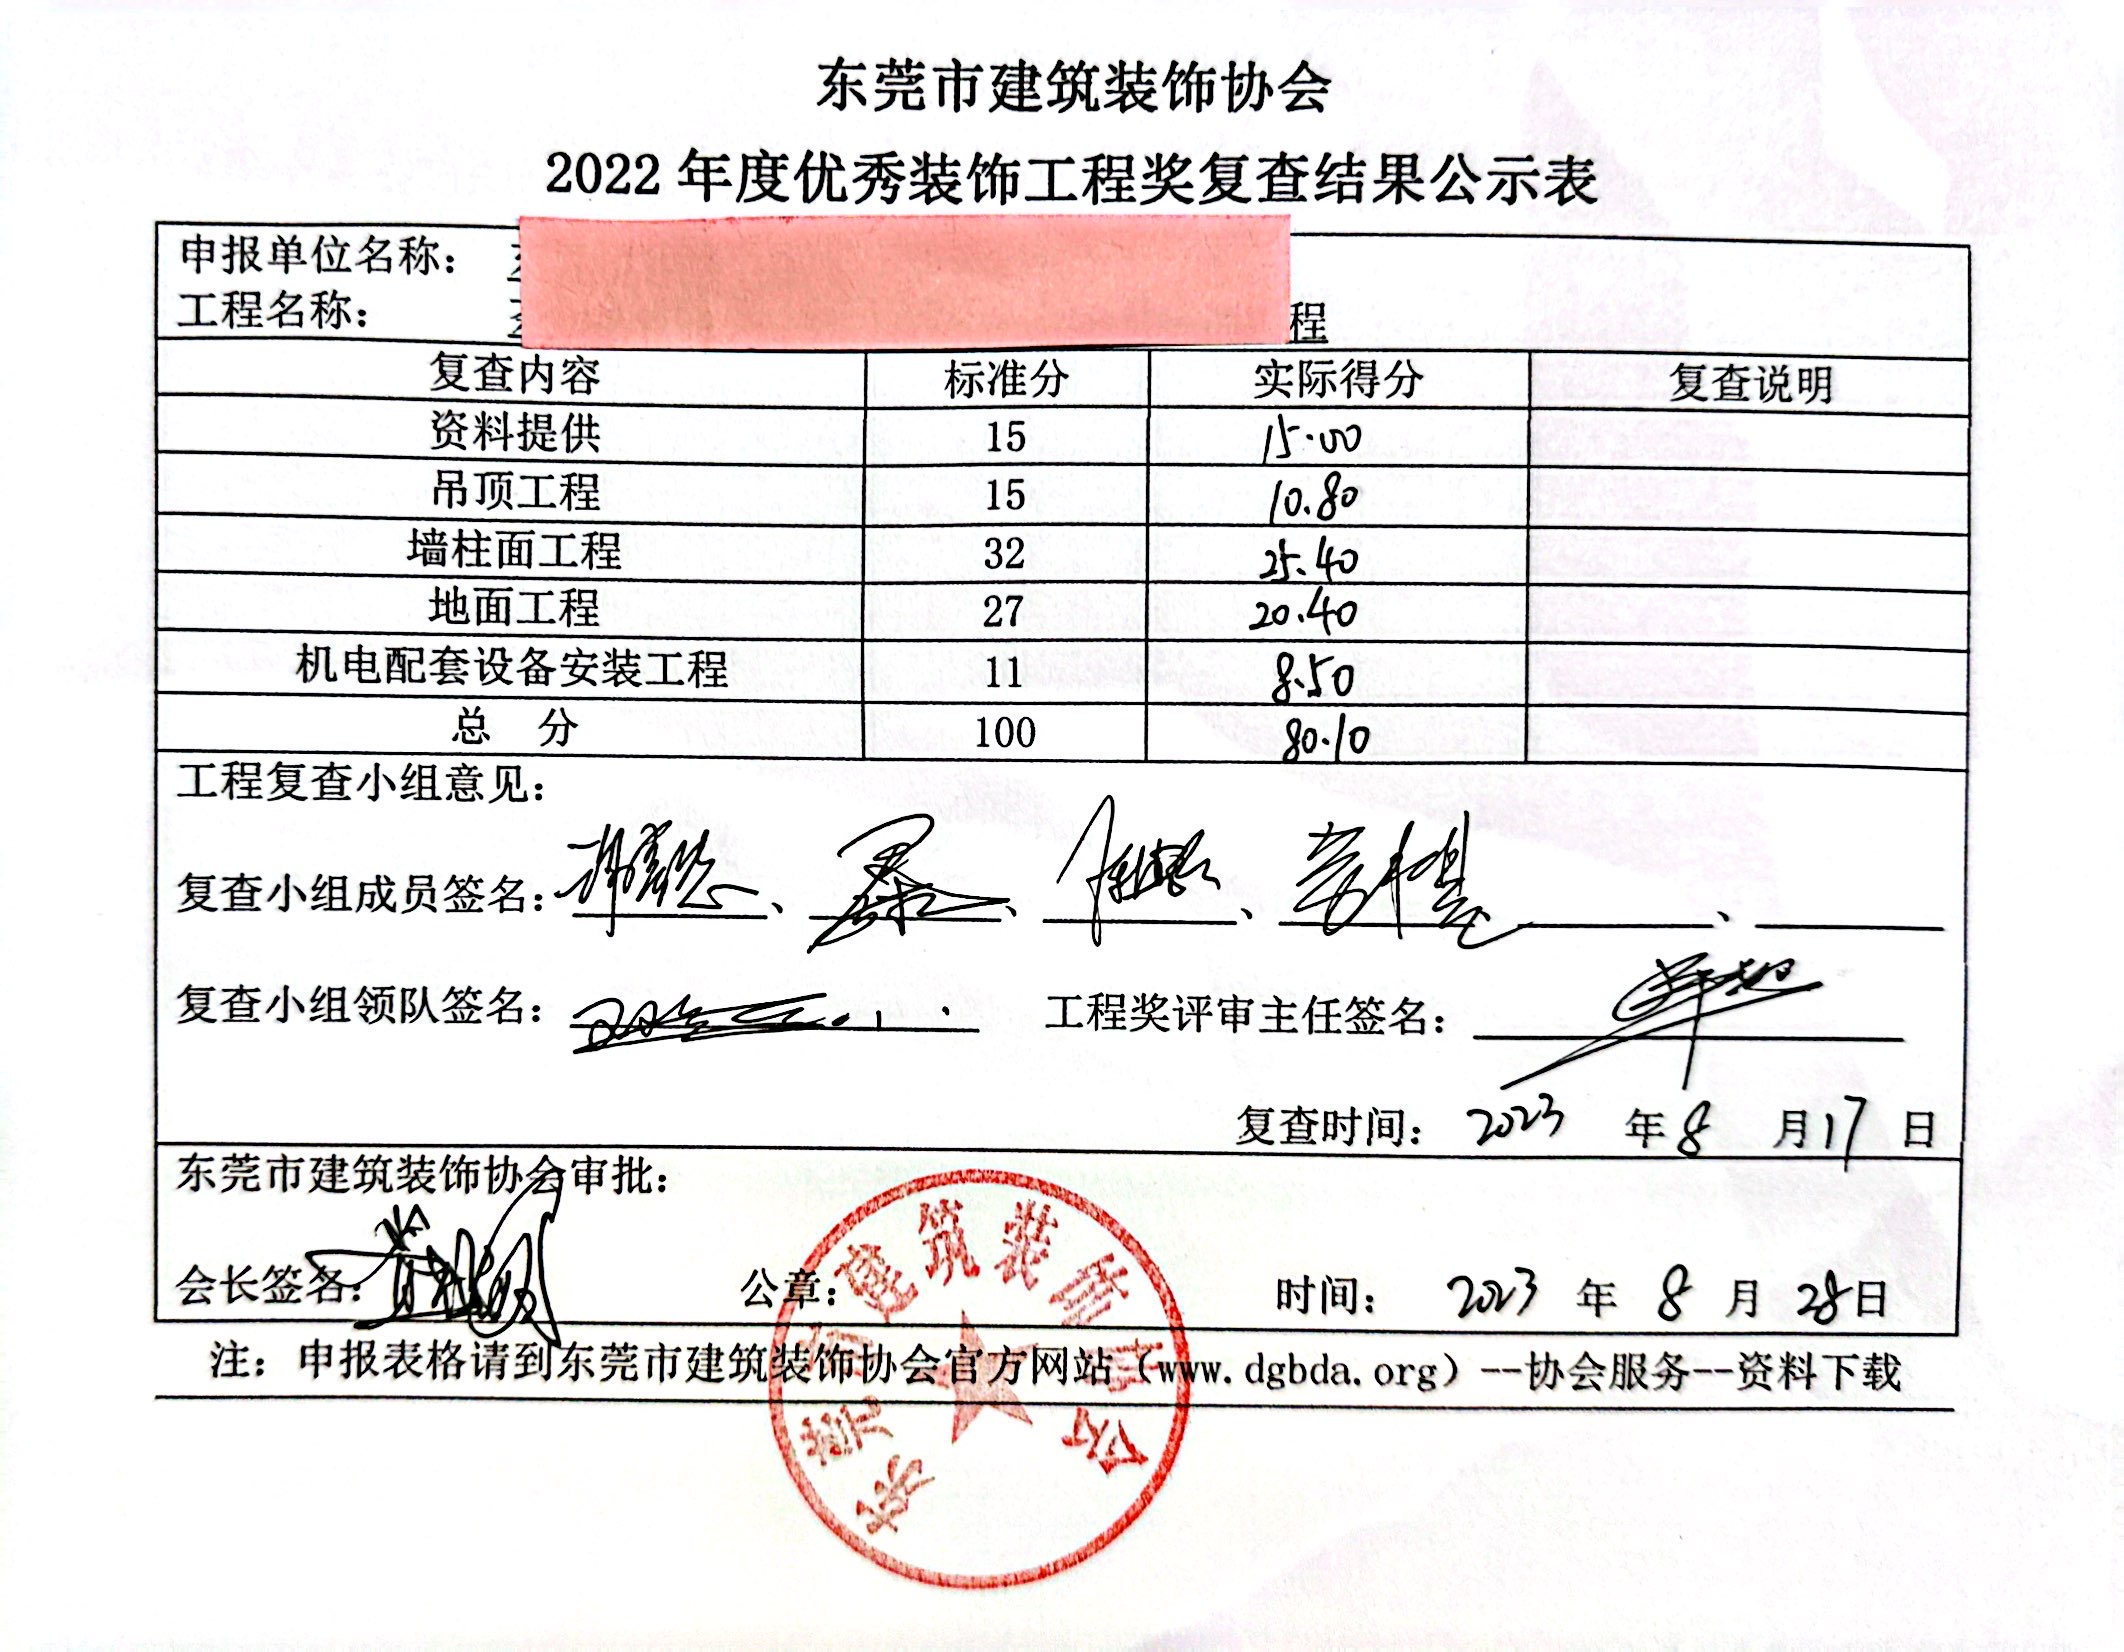 东莞市建筑装饰协会
2022 年度优秀装饰工程奖复查结果公示表
申报单位名称：
工程名称： 程
复查内容 标准分 实际得分 复查说明
资料提供 15 15.00
吊顶工程 15 10.80
墙柱面工程 32 25.40
地面工程 27 20.40
机电配套设备安装工程 11 8.50
总 分 100 80.10
工程复查小组意见：
复查小组成员签名： 、 、 、 、
复查小组领队签名： 工程奖评审主任签名：
复查时间： 2023 年 8 月 17 日
东莞市建筑装饰协会审批：
会长签名： 公章： 时间： 2023 年 8 月 28 日
东莞市建筑装饰协会
注：申报表格请到东莞市建筑装饰协会官方网站（www.dgbda.org）--协会服务--资料下载